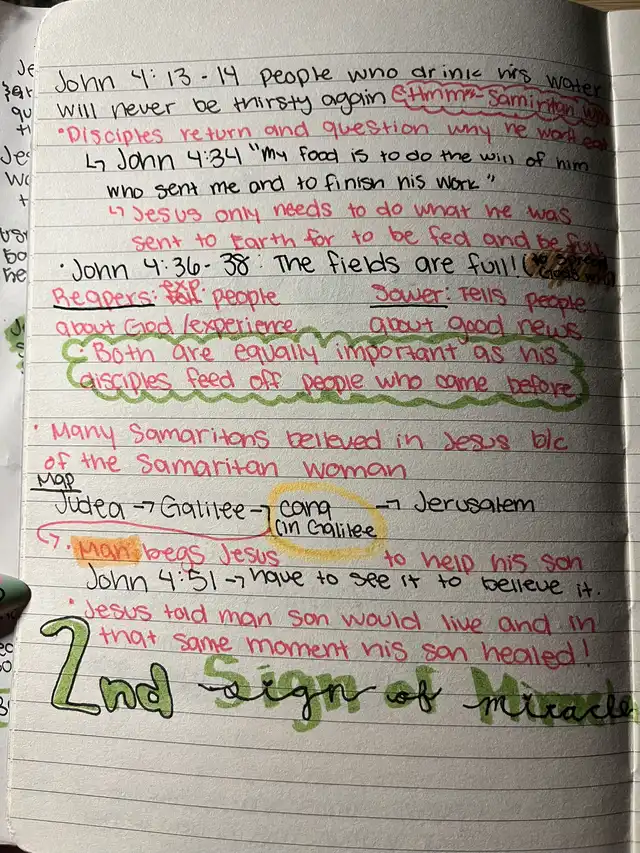 John 4:13-14 people who drink his water
will never be thirsty again Samiritan
• Disciples return and question why he wont eat
↳ John 4:34 "My food is to do the will of him
who sent me and to finish his work"
↳ Jesus only needs to do what he was
sent to Earth for to be fed and be full
• John 4:36-38: The fields are full!
Reapers: people
about God/experience
Sower: Tells people
about good news
• Both are equally important as his
disciples feed off people who came before
• Many Samaritans believed in Jesus b/c
of the Samaritan woman
Map
Judea → Galilee → cana → Jerusalem
(in Galilee
↳ • Man begs Jesus to help his son
John 4:51 → have to see it to believe it.
• Jesus told man son would live and in
that same moment his son healed!
2nd sign of miracle